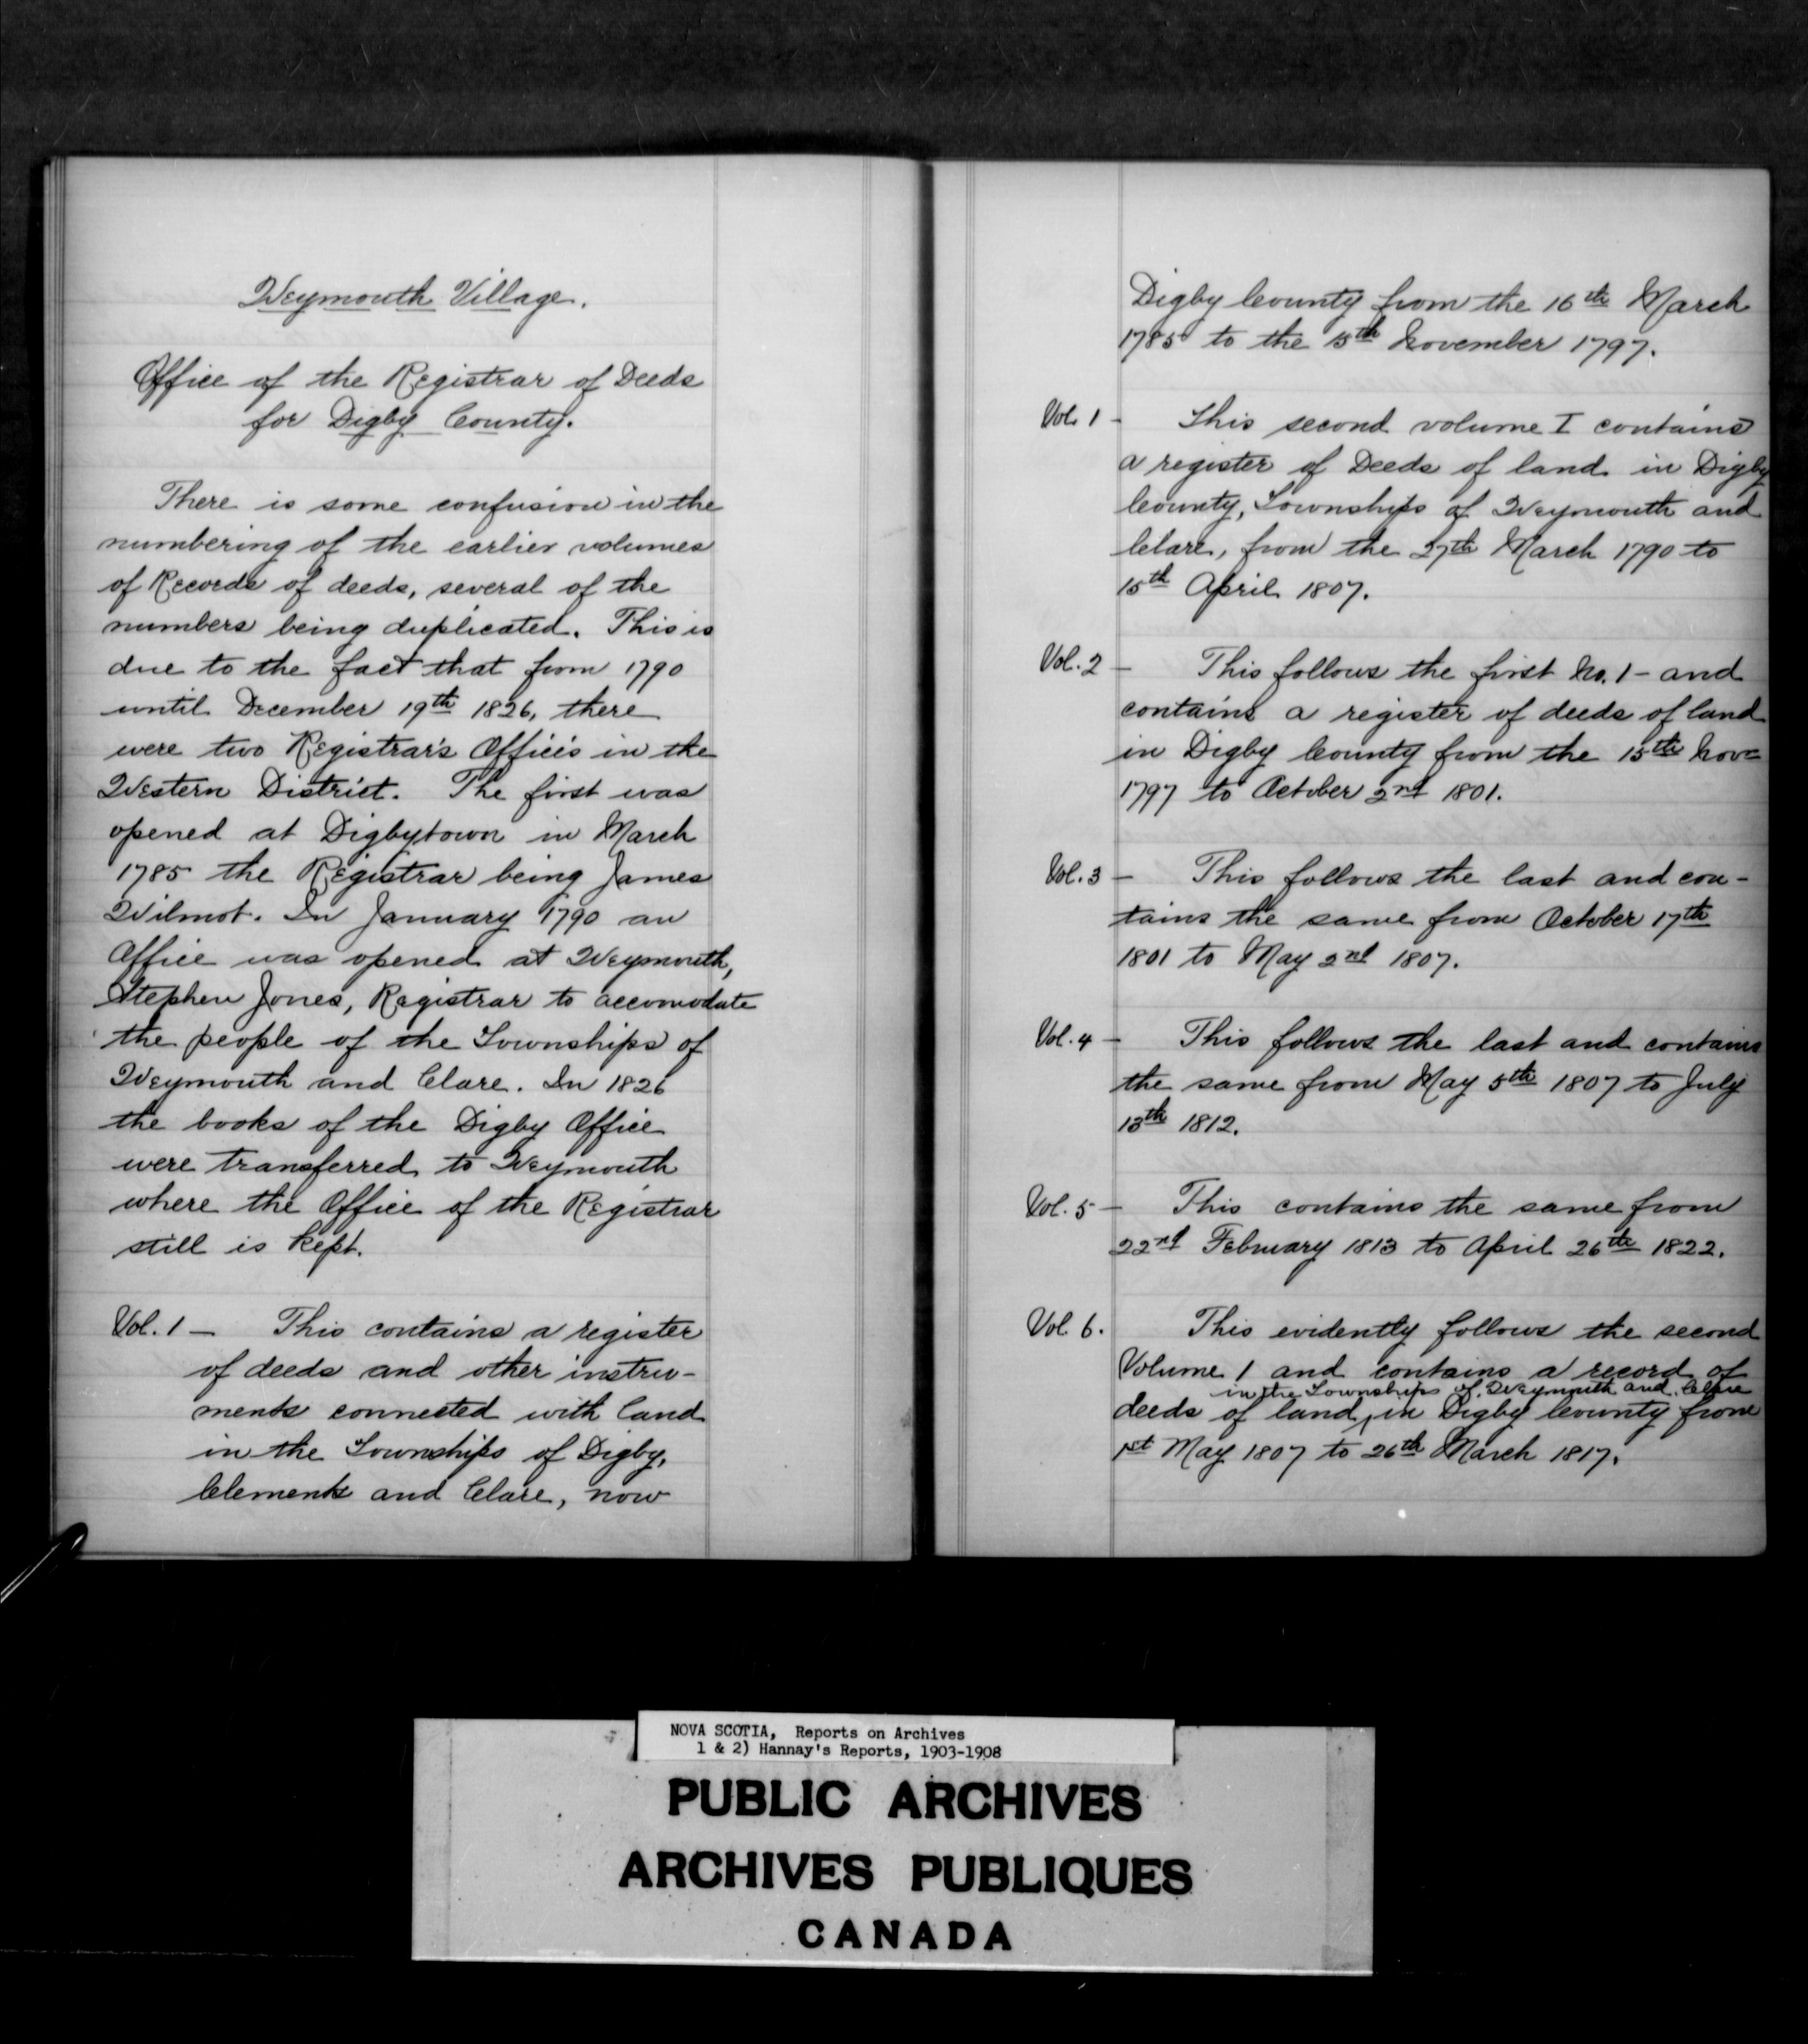 Weymouth Village.
Office of the Registrar of Deeds
for Digby County.
There is some confusion in the
numbering of the earlier volumes
of Records of deeds, several of the
numbers being duplicated. This is
due to the fact that from 1790
until December 19th 1826, there
were two Registrar's Offices in the
Western District. The first was
opened at Digbytown in March
1785 the Registrar being James
Wilmot. In January 1790 an
Office was opened at Weymouth,
Stephen Jones, Registrar to accomodate
the people of the Townships of
Weymouth and Clare. In 1826
the books of the Digby Office
were transferred to Weymouth
where the Office of the Registrar
still is kept.
Vol. 1 – This contains a register
of deeds and other instru-
ments connected with land
in the Townships of Digby,
Clements and Clare, now
Digby County from the 16th March
1785 to the 15th November 1797.
Vol. 1 – This second volume I contains
a register of Deeds of land in Digby
County, Townships of Weymouth and
Clare, from the 27th March 1790 to
15th April 1807.
Vol. 2 – This follows the first No. 1 – and
contains a register of deeds of land
in Digby County from the 15th Nov
1797 to October 2nd 1801.
Vol. 3 – This follows the last and con-
tains the same from October 17th
1801 to May 2nd 1807.
Vol. 4 – This follows the last and contains
the same from May 5th 1807 to July
13th 1812.
Vol. 5 – This contains the same from
22nd February 1813 to April 26th 1822.
Vol 6. This evidently follows the second
Volume 1 and contains a record of
in the Townships of Weymouth and Clare
deeds of land, in Digby County from
1st May 1807 to 26th March 1817.
NOVA SCOTIA, Reports on Archives
1 & 2) Hannay's Reports, 1903-1908
PUBLIC ARCHIVES
ARCHIVES PUBLIQUES
CANADA